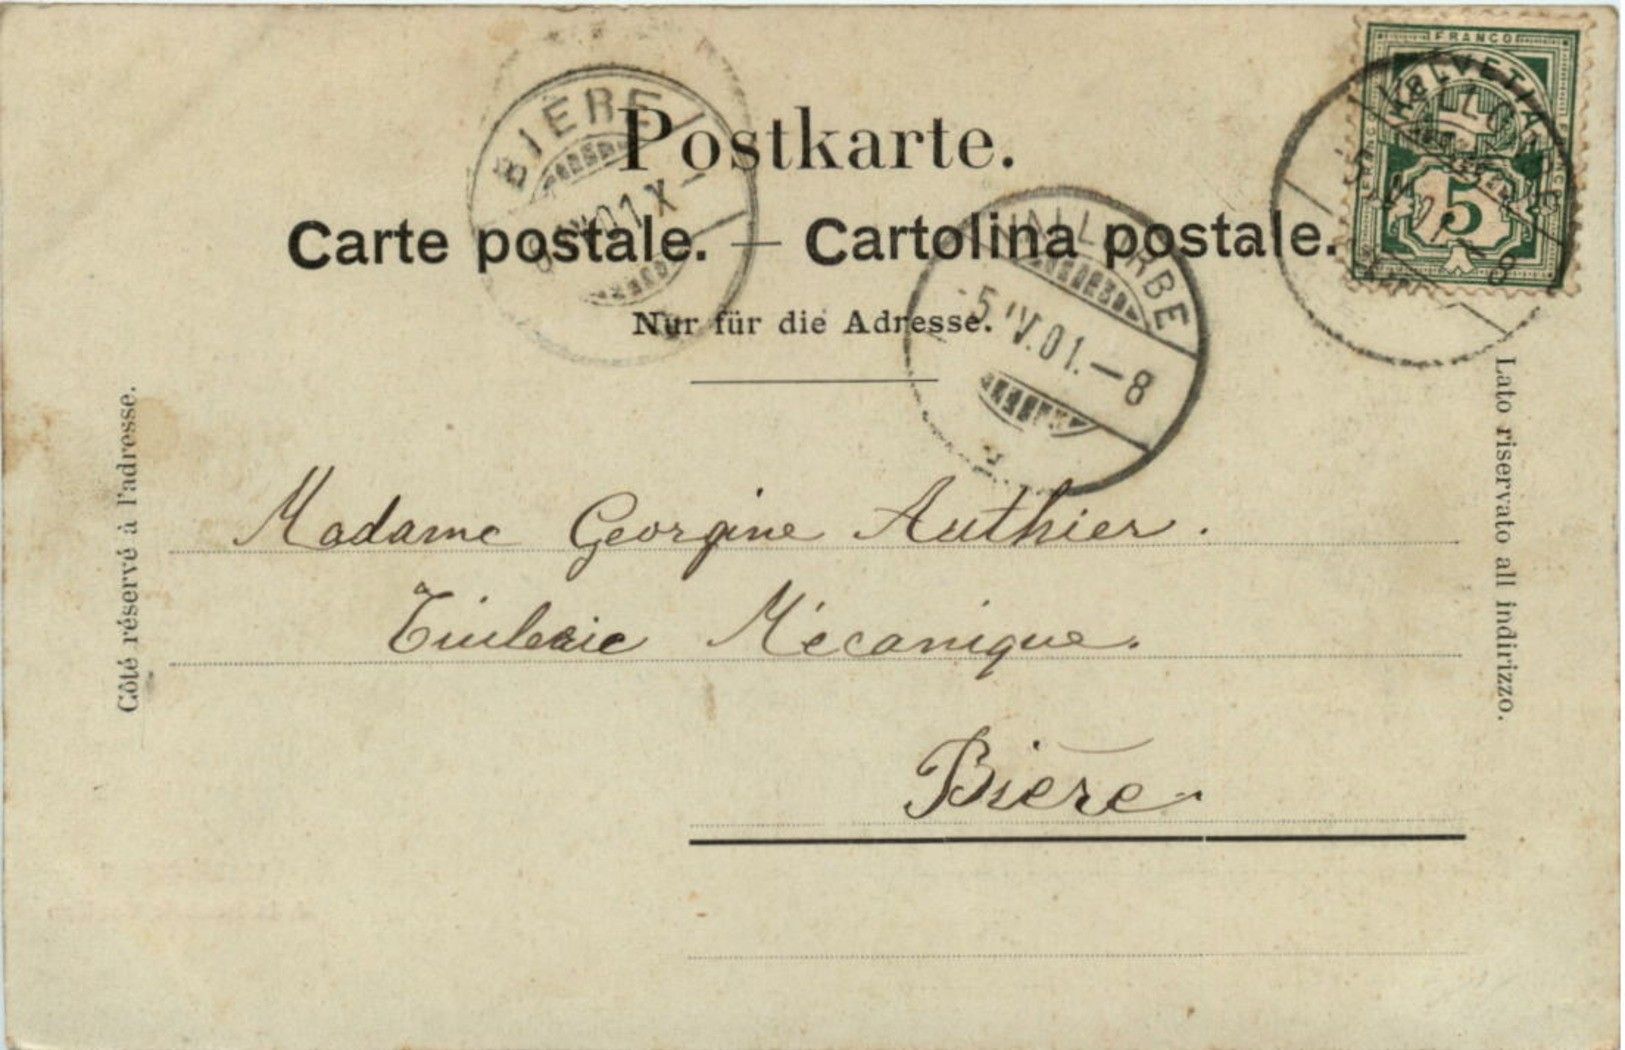 FRANCO
HELVETIA
5
BIÈRE
Postkarte.
Carte postale. — Cartolina postale.
VALLORBE
-5 IV.01.-8
Nur für die Adresse.
Côté réservé à l'adresse.
Lato riservato all indirizzo.
Madame Georgine Authier.
Tuilerie Mécanique.
Bière